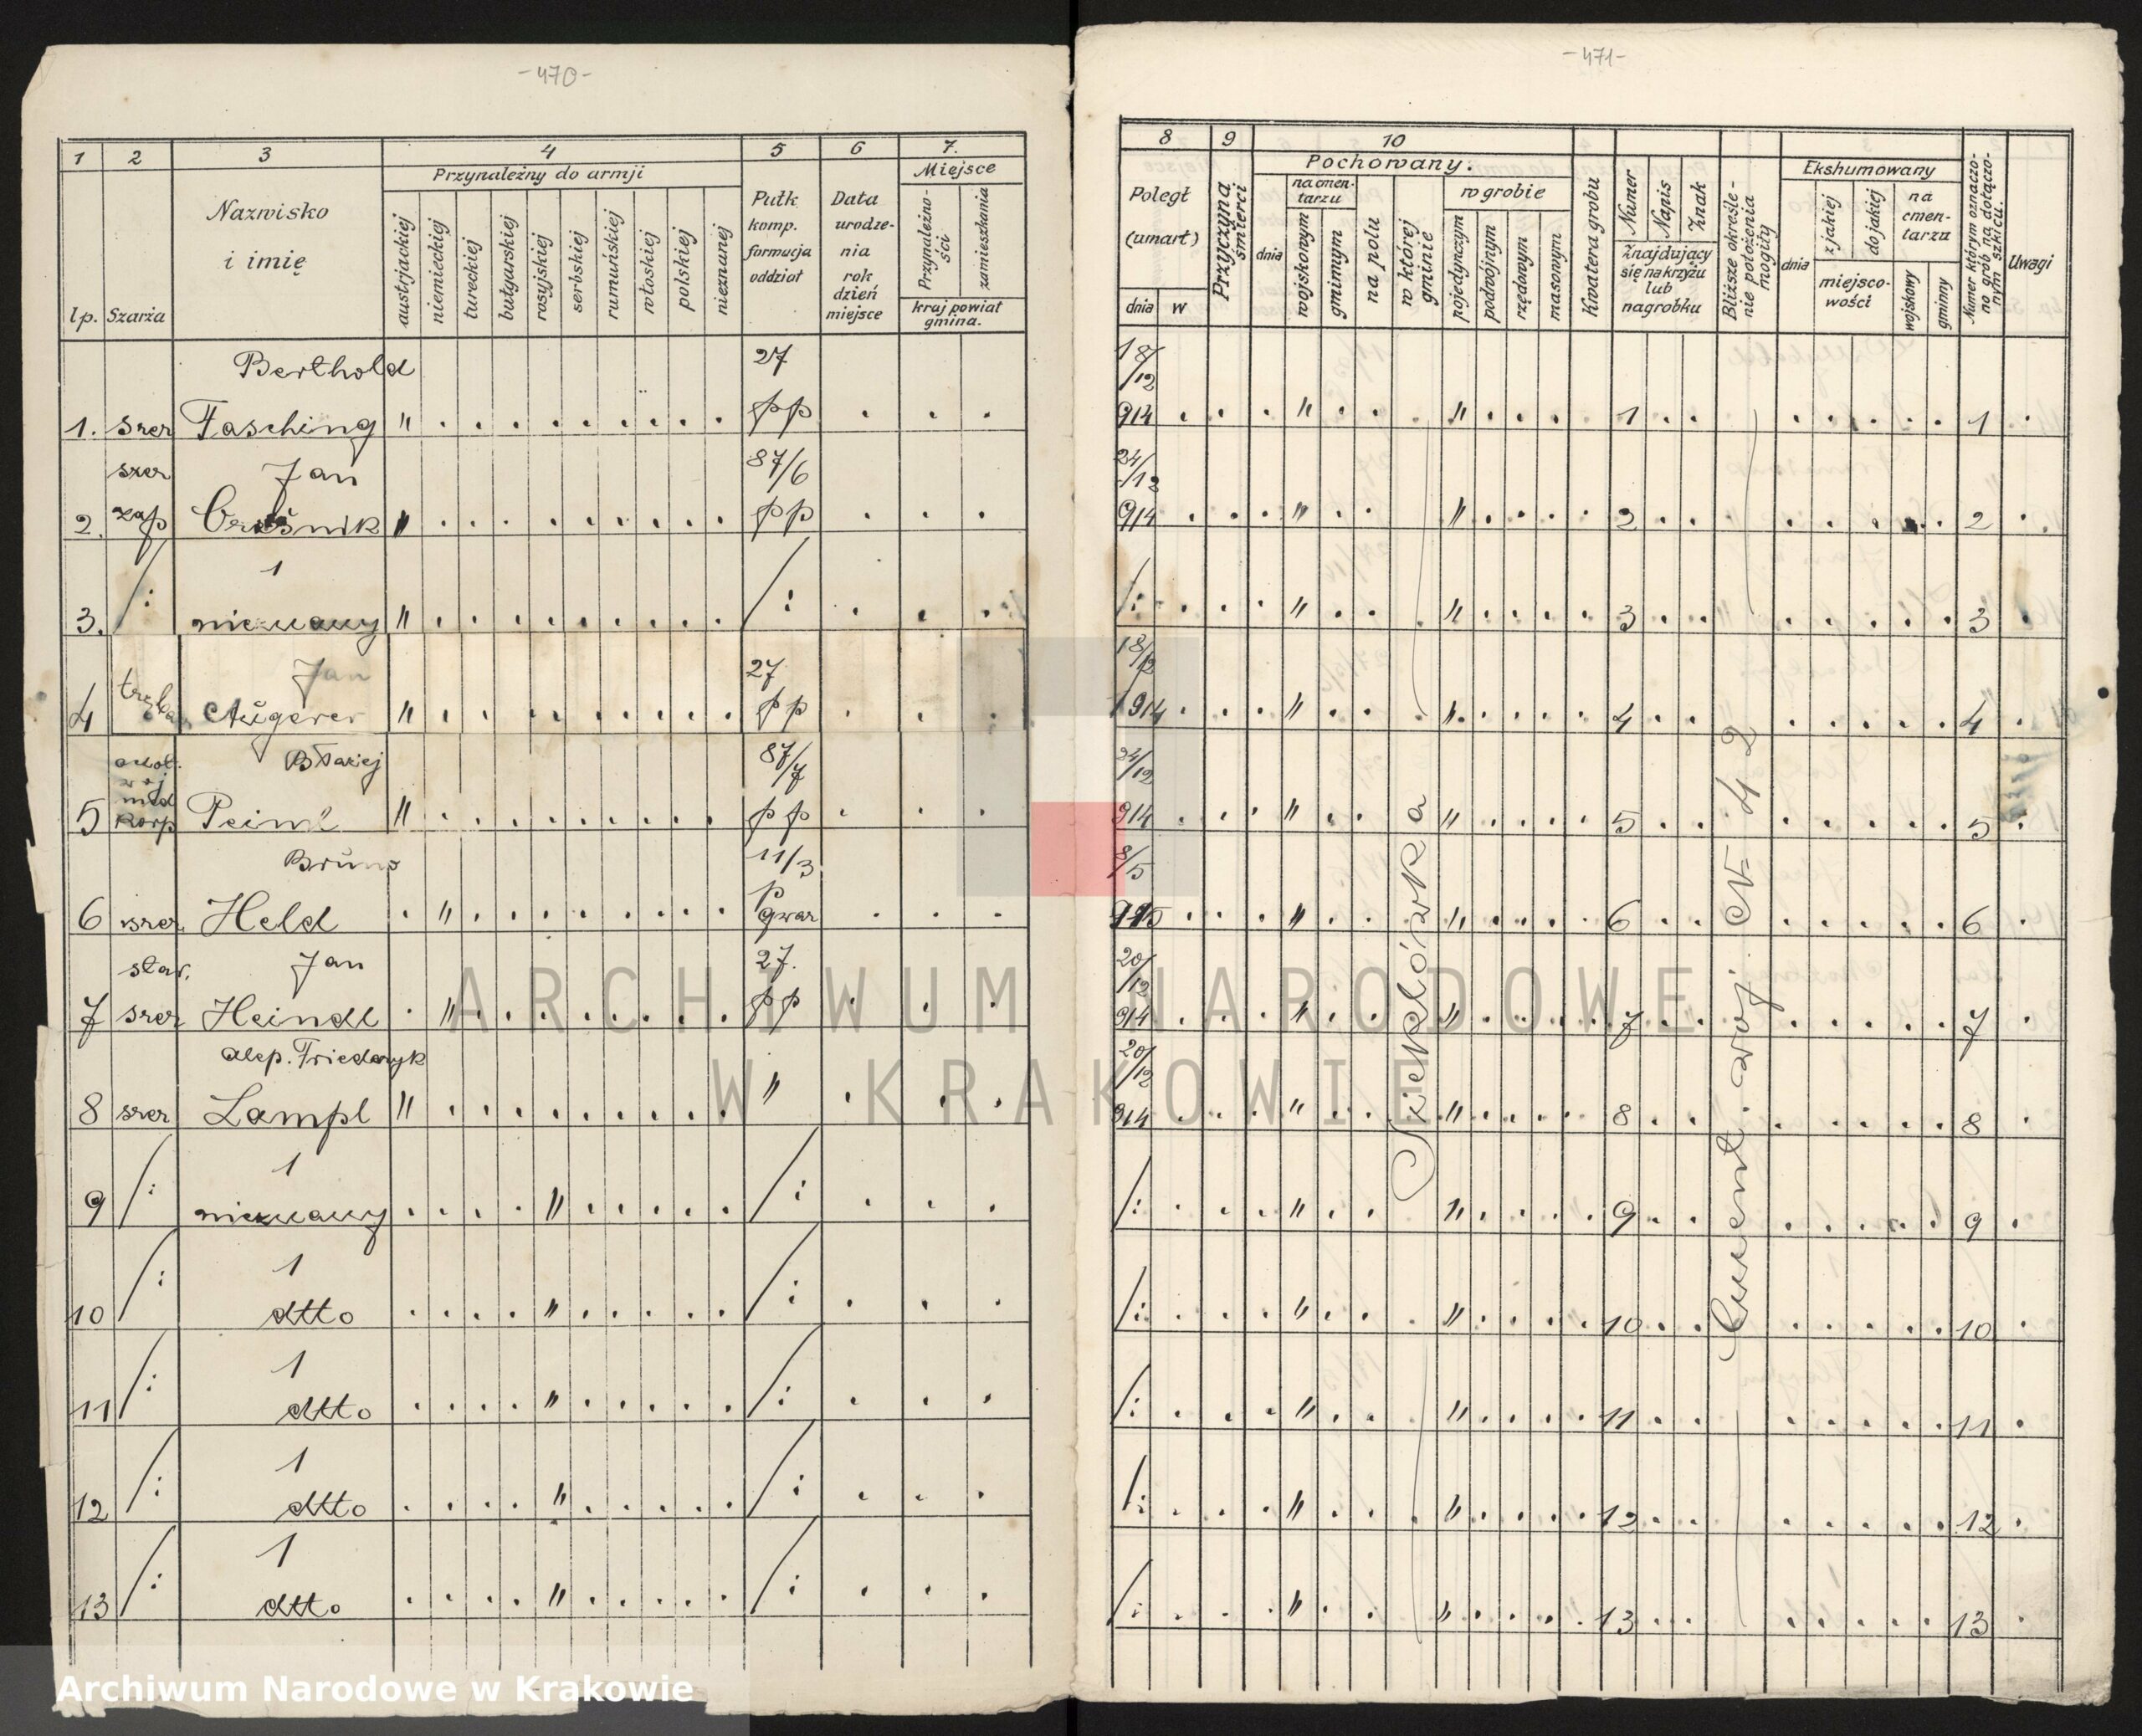 -470-
1 2 3 4 5 6 7.
Przynależny do armji
Miejsce
lp.
Szarża
Nazwisko
i imię
austrjackiej
niemieckiej
tureckiej
bułgarskiej
rosyjskiej
serbskiej
rumuńskiej
włoskiej
polskiej
nieznanej
Pułk
komp.
formacja
oddział
Data
urodze-
nia
rok
dzień
miejsce
Przynależno-
ści
zamieszkania
kraj powiat
gmina.
Berthold 27
1. szer Fasching " . . . . . . . . . pp . . .
szer Jan 87/6
2. zap " . . . . . . . . . pp . . .
/: 1 /:
3. nieznany " . . . . . . . . . . . .
Jan 27
4 Augerer " . . . . . . . . . pp . . .
Błażej 87/7
5 korp Peiml " . . . . . . . . . pp . . .
Bruno 11/3
p
6 szer Held . " . . . . . . . . gwar . . .
star. Jan 27.
7 szer Heindl . " . . . . . . . . pp . . .
alep. Friedryk
8 szer Lampl " . . . . . . . . . " . . .
/: 1 /:
9 nieznany . . . . " . . . . . . . .
/: 1 /:
10 dtto . . . . " . . . . . . . .
/: 1 /:
11 dtto . . . . " . . . . . . . .
/: 1 /:
12 dtto . . . . " . . . . . . . .
/: 1 /:
13 dtto . . . . " . . . . . . . .
-471-
8 9 10
Poległ
(umarł)
dnia w
Przyczyna
śmierci
Pochowany.
dnia
na cmen-
tarzu
wojskowym
gminnym
na polu
w której
gminie
w grobie
pojedynczym
podwójnym
rzędowym
masowym
Kwatera grobu
Numer
Napis
Znak
Znajdujący
się na krzyżu
lub
nagrobku
Bliższe określe-
nie położenia
mogiły
Ekshumowany
dnia
z jakiej
do jakiej
miejsco-
wości
na
cmen-
tarzu
wojskowy
gminny
Numer którym oznaczo-
no grób na dołączo-
nym szkicu.
Uwagi
18/12
914 . . . " . . " . . . 1 . . . . . . . 1 .
24/12
914 . . . " . . " . . . . 2 . . . . . . . 2 .
/: . . . " . . . " . . . . 3 . . . . . . . 3 .
18/12
1914 . . . " . . . " . . . . 4 . . . . . . . 4 .
24/12
914 . . . " . . " . . . . 5 . . . . . . . 5 .
8/5
915 . . . " . . " . . . . 6 . . . . . . . 6 .
20/12
914 . . . " . . " . . . . 7 . . . . . . . 7 .
20/12
914 . . . " . . " . . . . 8 . . . . . . . 8 .
/: . . . " . . " . . . . 9 . . . . . . . 9 .
/: . . . " . . . " . . . . 10 . . . . . . . 10 .
/: . . . " . . " . . . . 11 . . . . . . . 11 .
/: . . . " . . . " . . . . 12 . . . . . . . 12 .
/: . . . " . . " . . . . 13 . . . . . . . 13 .
Siekłówka
Cment. woj. N= 42
ARCHIWUM NARODOWE
W KRAKOWIE
Archiwum Narodowe w Krakowie